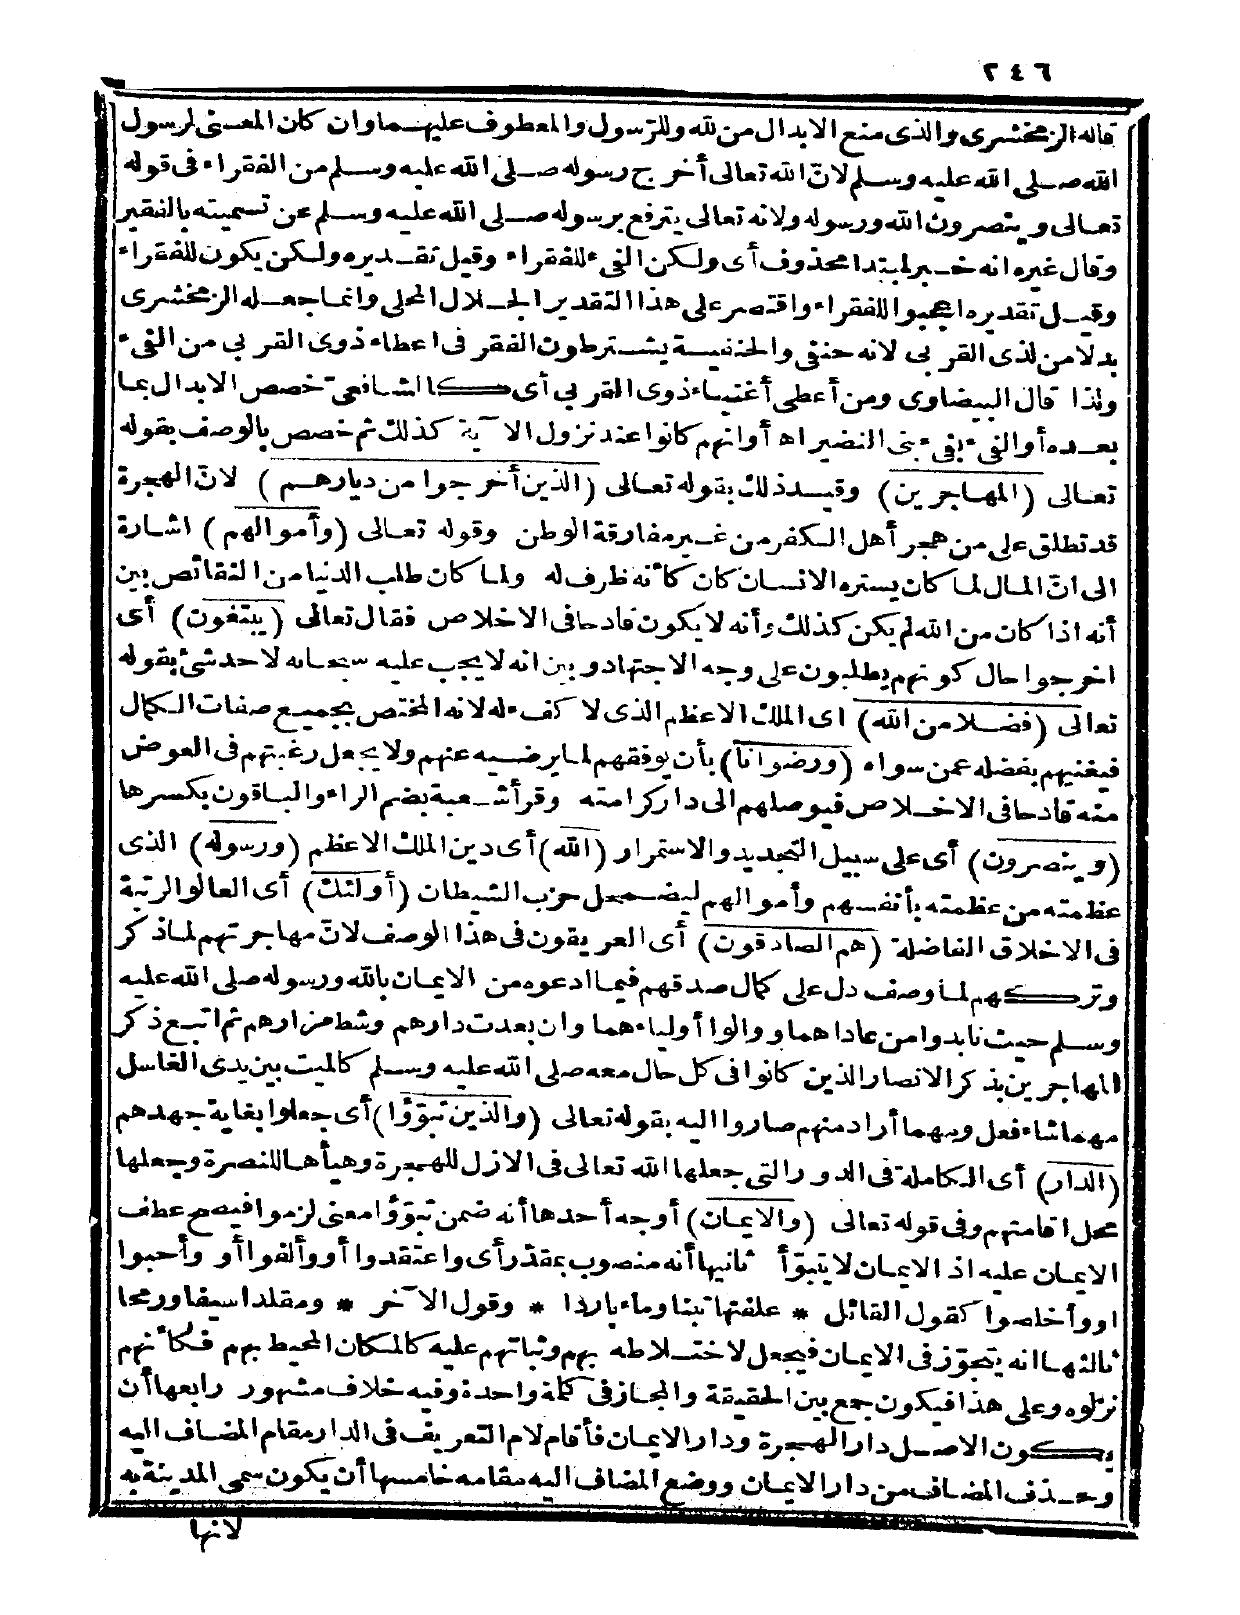 ٢٤٦
قاله الزمخشرى والذى منع الابدال من لله وللرسول والمعطوف عليهما وان كان المعنى لرسول
الله صلى الله عليه وسلم لانّ الله تعالى أخرج رسوله صلى الله عليه وسلم من الفقراء فى قوله
تعالى وينصرون الله ورسوله ولانه تعالى يترفع برسوله صلى الله عليه وسلم عن تسميته بالفقير
وقال غيره انه خبر لمبتدا محذوف أى ولكن الفىء للفقراء وقيل تقديره ولكن يكون للفقراء
وقيل تقديره اعجبوا للفقراء واقتصر على هذا التقدير الجلال المحلى وانما جعله الزمخشرى
بدلا من لذى القربى لانه حنفى والحنفية يشترطون الفقر فى اعطاء ذوى القربى من الفىء
ولذا قال البيضاوى ومن أعطى أغنياء ذوى القربى أى كالشافعىّ خصص الابدال بما
بعده أو الفىء بفىء بنى النضير اه أو انهم كانوا عند نزول الآية كذلك ثم خصص بالوصف بقوله
تعالى (المهاجرين) وقيد ذلك بقوله تعالى (الذين أخرجوا من ديارهم) لانّ الهجرة
قد تطلق على من هجر أهل الكفر من غير مفارقة الوطن وقوله تعالى (وأموالهم) اشارة
الى انّ المال لما كان يستره الانسان كان كأنه ظرف له ولما كان طلب الدنيا من النقائص بين
أنه اذا كان من الله لم يكن كذلك وأنه لا يكون قادحا فى الاخلاص فقال تعالى (يبتغون) أى
اخرجوا حال كونهم يطلبون على وجه الاجتهاد وبين انه لا يجب عليه سبحانه لاحد شئ بقوله
تعالى (فضلا من الله) اى الملك الاعظم الذى لا كفء له لانه المختص بجميع صفات الكمال
فيغنيهم بفضله عمن سواه (ورضوانا) بأن يوفقهم لما يرضيه عنهم ولا يجعل رغبتهم فى العوض
منه قادحا فى الاخلاص فيوصلهم الى دار كرامته وقرأ شعبة بضم الراء والباقون بكسرها
(وينصرون) أى على سبيل التجديد والاستمرار (الله) أى دين الملك الاعظم (ورسوله) الذى
عظمته من عظمته بأنفسهم وأموالهم ليضمحل حزب الشيطان (أولئك) أى العالو الرتبة
فى الاخلاق الفاضلة (هم الصادقون) أى العريقون فى هذا الوصف لانّ مهاجرتهم لما ذكر
وتركهم لما وصف دل على كمال صدقهم فيما ادعوه من الايمان بالله ورسوله صلى الله عليه
وسلم حيث نابدوا من عاداهما ووالوا أولياءهما وان بعدت دارهم وشط مزارهم ثم اتبع ذكر
المهاجرين بذكر الانصار الذين كانوا فى كل حال معه صلى الله عليه وسلم كالميت بين يدى الغاسل
مهما شاء فعل ومهما أراد منهم صاروا اليه بقوله تعالى (والذين تبوّؤا) أى جعلوا بغاية جهدهم
(الدار) أى الكاملة فى الدور التى جعلها الله تعالى فى الازل للهجرة وهيأها للنصرة وجعلها
محل اقامتهم وفى قوله تعالى (والايمان) أوجه أحدها أنه ضمن تبوّؤا معنى لزموا فيصح عطف
الايمان عليه اذ الايمان لا يتبوّأ ثانيها أنه منصوب بمقدّر أى واعتقدوا أو وألفوا أو وأحبوا
او وأخلصوا كقول القائل * علفتها تبنا وماء باردا * وقول الآخر * ومقلدا سيفا ورمحا
ثالثها انه يتجوّز فى الايمان فيجعل لاختلاطه بهم وثباتهم عليه كالمكان المحيط بهم فكأنهم
نزلوه وعلى هذا فيكون جمع بين الحقيقة والمجاز فى كلمة واحدة وفيه خلاف مشهور رابعها أن
يكون الاصل دار الهجرة ودار الايمان فأقام لام التعريف فى الدار مقام المضاف اليه
وحذف المضاف من دار الايمان ووضع المضاف اليه مقامه خامسها أن يكون سمى المدينة به
لانها